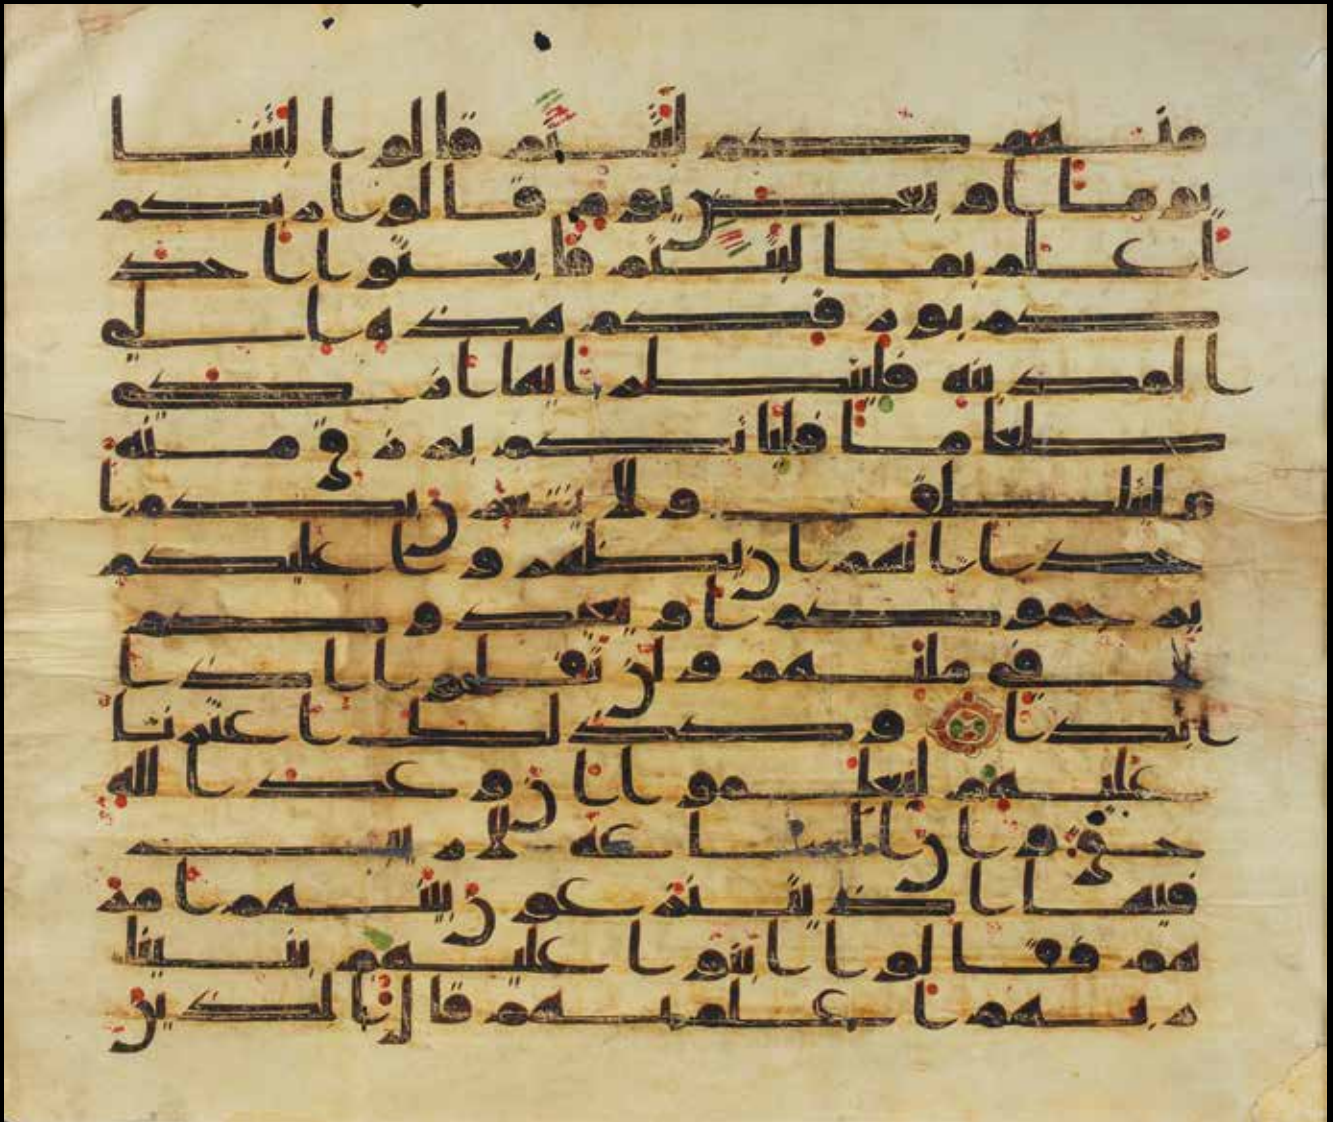 منهم كم لبثتم قالوا لبثنا
يوما او بعض يوم قالوا ربكم
اعلم بما لبثتم فابعثوا احد
كم بورقكم هذه الى
المدينة فلينظر ايها ازكى
طعاما فلياتكم برزق منه
وليتلطف ولا يشعرن بكم ا
حدا انهم ان يظهروا عليكم
يرجموكم او يعيدوكم
فى ملتهم ولن تفلحوا اذا
ابدا وكذلك اعثرنا
عليهم ليعلموا ان وعد الله
حق وان الساعة لا ريب
فيها اذ يتنزعون بينهم امر
هم فقالوا ابنوا عليهم بنينا
ربهم اعلم بهم قال الذين